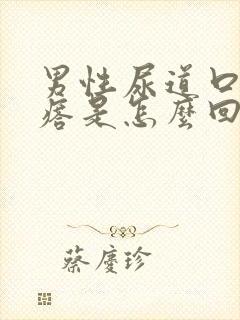 男性尿道口
痞是怎麼回
蔡慶珍